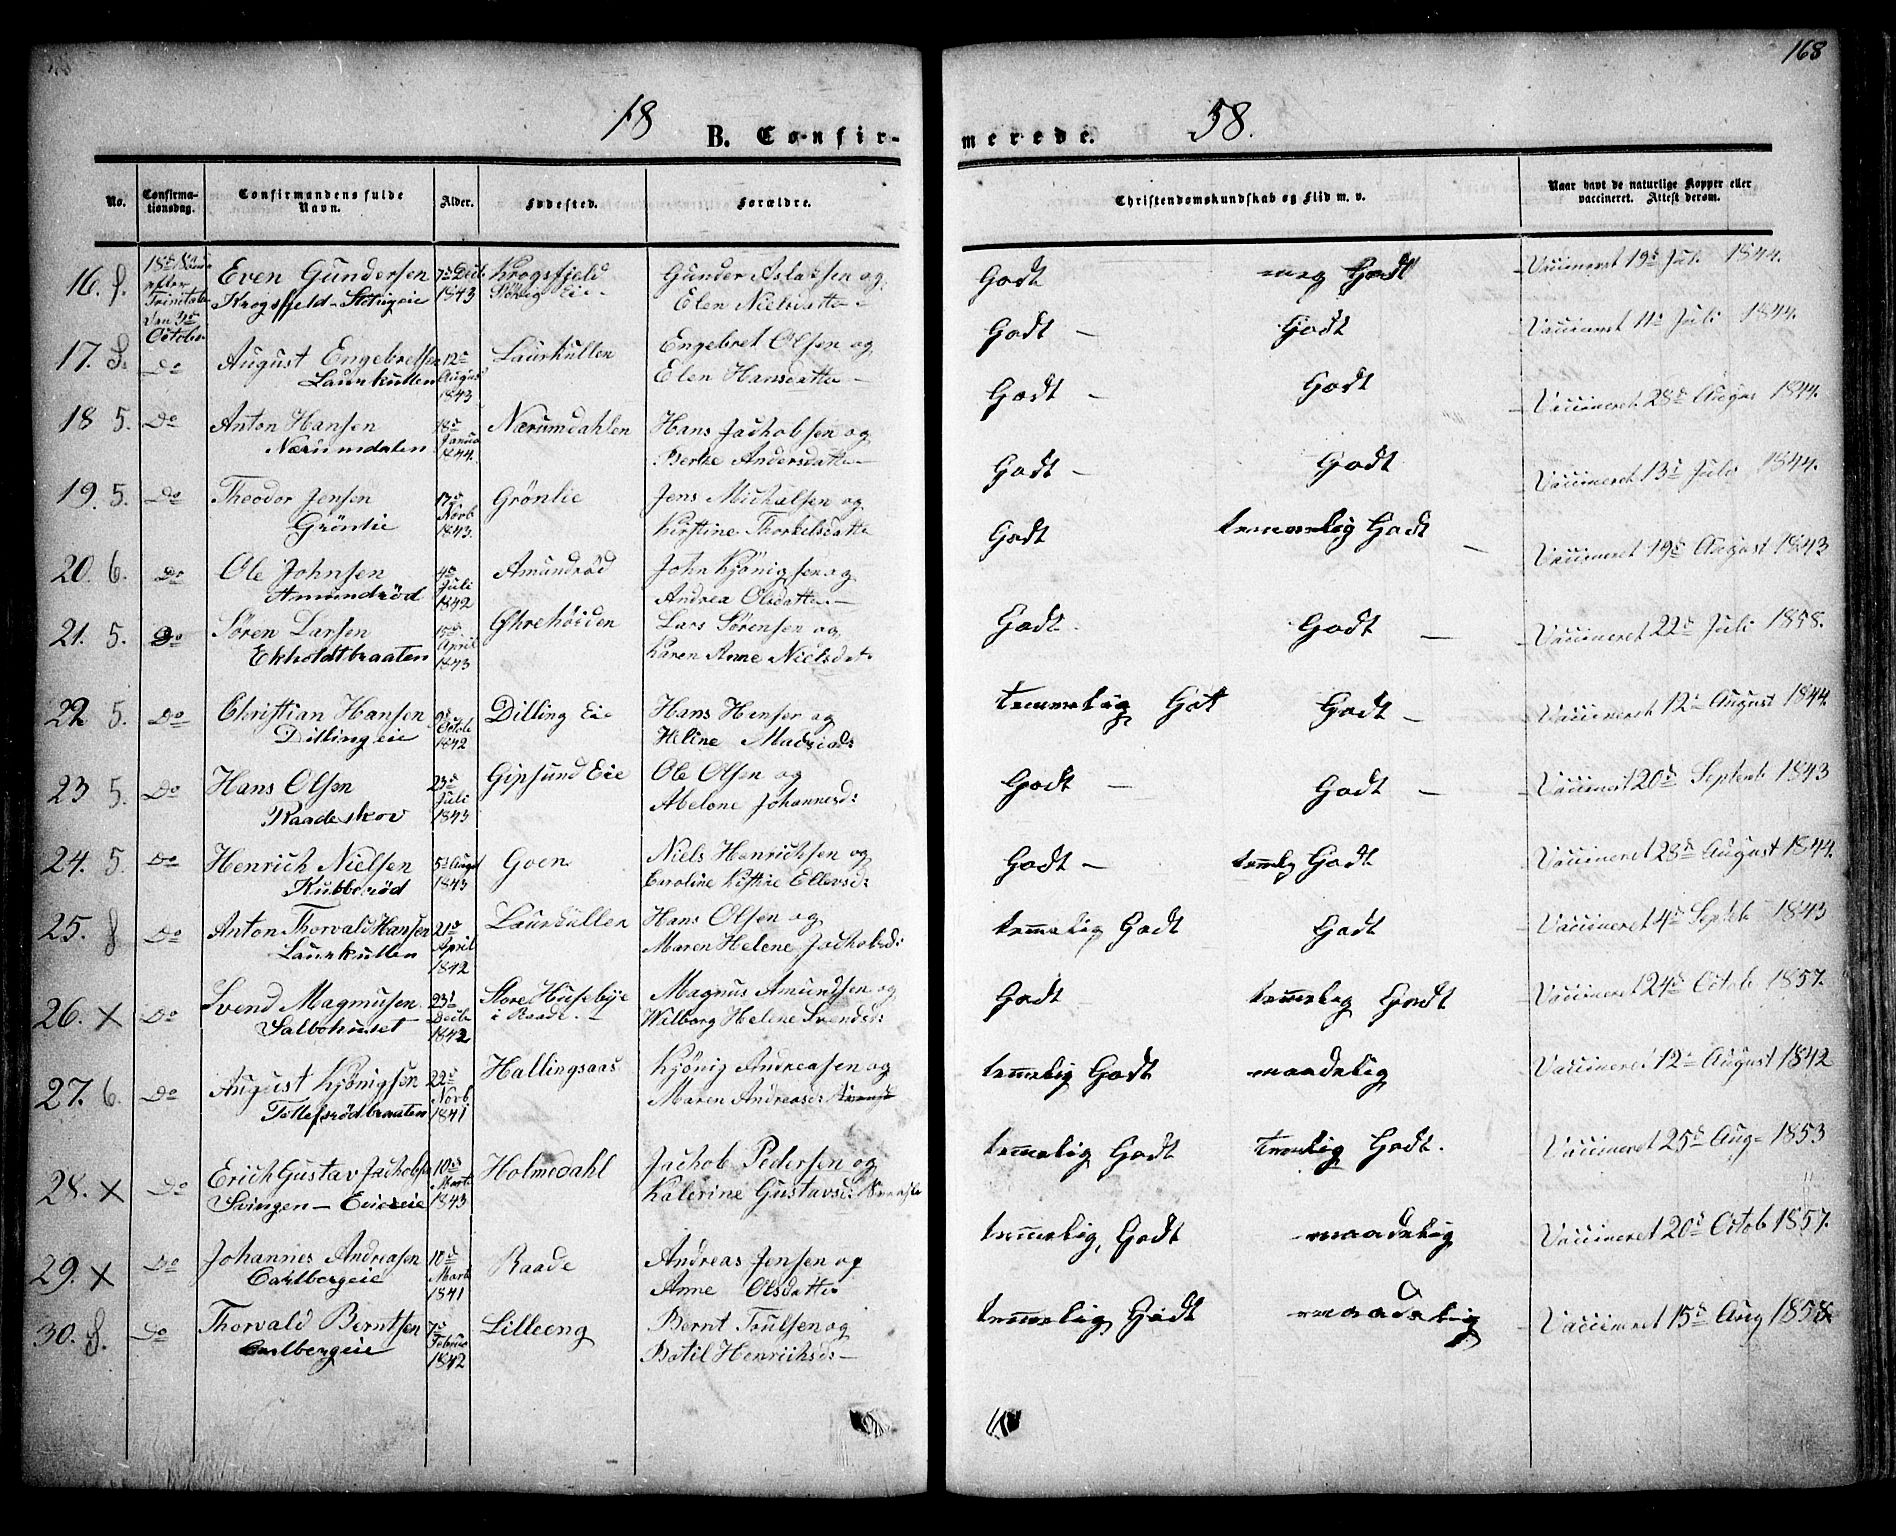 168
18 58.
B. Confirmerede.
No. Confirmationsdag. Confirmandens fulde Navn. Alder. Fødested. Forældre. Christendomskundskab og Flid m. v. Naar havt de naturlige Kopper eller vaccineret. Attest derom.
16. 18de Sønd efter Trinitatis den 3die October Even Gundersen Krogsfjeld-Störigeie 7de Decb 1843 Krogsfjeld Störig Eie Gunder Aslaksen og Elen Nielsdatter Godt meg Godt Vaccineret 19de Juli 1844.
17. Do August Engebretsen Laurkullen 12te August 1843 Laurkullen Engebret Olsen og Elen Hansdatter Godt Godt Vaccineret 11te Juli 1844.
18 5. Do Anton Hansen Nærumdalen 18de Janua 1844. Nærumdahlen Hans Jachobsen og Berthe Andersdatter Godt Godt Vaccineret 28de August 1844.
19. 5. Do Theodor Jensen Grönlie 17de Novb 1843. Grönlie Jens Michalsen og Kirstine Thorkelsdatter Godt Godt Vaccineret 13de Juli 1844.
20. 6. Do Ole Johnsen Amundröd 4de Juli 1842 Amundröd John Kjönigsen og Andrea Olsdatter Godt temmelig Godt Vaccineret 19de August 1843
21. 5. Do Sören Larsen Ekholdtbraaten 15de April 1843 Öhrehöiden Lars Sörensen og Karen Anne Nielsdat: Godt Godt Vaccineret 22de Juli 1858.
22 5. Do Christian Hansen Dillingeie 9de Octob 1842 Dilling Eie Hans Henser og Heline Madsdats temmelig Got Godt Vaccineret 12te August 1844
23 5. Do Hans Olsen Raadeskov 23de Juli 1843 Gipsund Eie Ole Olsen og Abelone Johannesd: Godt Godt Vaccineret 20de Septemb 1843
24. 5 Do Henrich Nielsen Kubberöd 5te Augst 1843 Goen Niels Henrichsen og Caroline Kistine Ellevsd: Godt temelig Godt Vaccineret 28de August 1844.
25. Do Anton Thorvald Hansen Laurkullen 21de April 1842 Laurkullen Hans Olsen og Maren Helene Jachobsd: temmelig Godt Godt Vaccineret 4de Septeb 1843
26. X Do Svend Magnusen Salbohuset 23de Decbr 1842 Store Huseböje i Raade Magnus Amundsen og Wilborg Helene Svendsd: Godt temmelig Godt Vaccineret 24de Octob 1857.
27. 6. Do August Kjönigsen Tollefsrödbraaten 22de Novb 1841 Hallingsaas Kjönig Andreasen og Maren Andreasd: temmelig Godt maadelig Vaccineret 12te August 1842
28. X Do Erich Gustav Jachobsen Svingen - Evieeie 10de Mart 1843 Holmedahl Jachob Pedersen og Katerine Gustavsd: temmelig Godt Temelig Godt. Vaccineret 25de Aug 1853
29. X Do Johannes Andreasen Carlbergeie 10de Mart 1841 Raade Andreas Jensen og Anne Olsdatter temmelig Godt maadelig Vaccineret 20de Octob 1857.
30. Do Thorvald Berntsen Carlbergeie 7de Februar 1842 Lilleeng Bernt Trulsen og Botil Henrichsd: temmelig Godt maadelig Vaccineret 15de Aug 1858